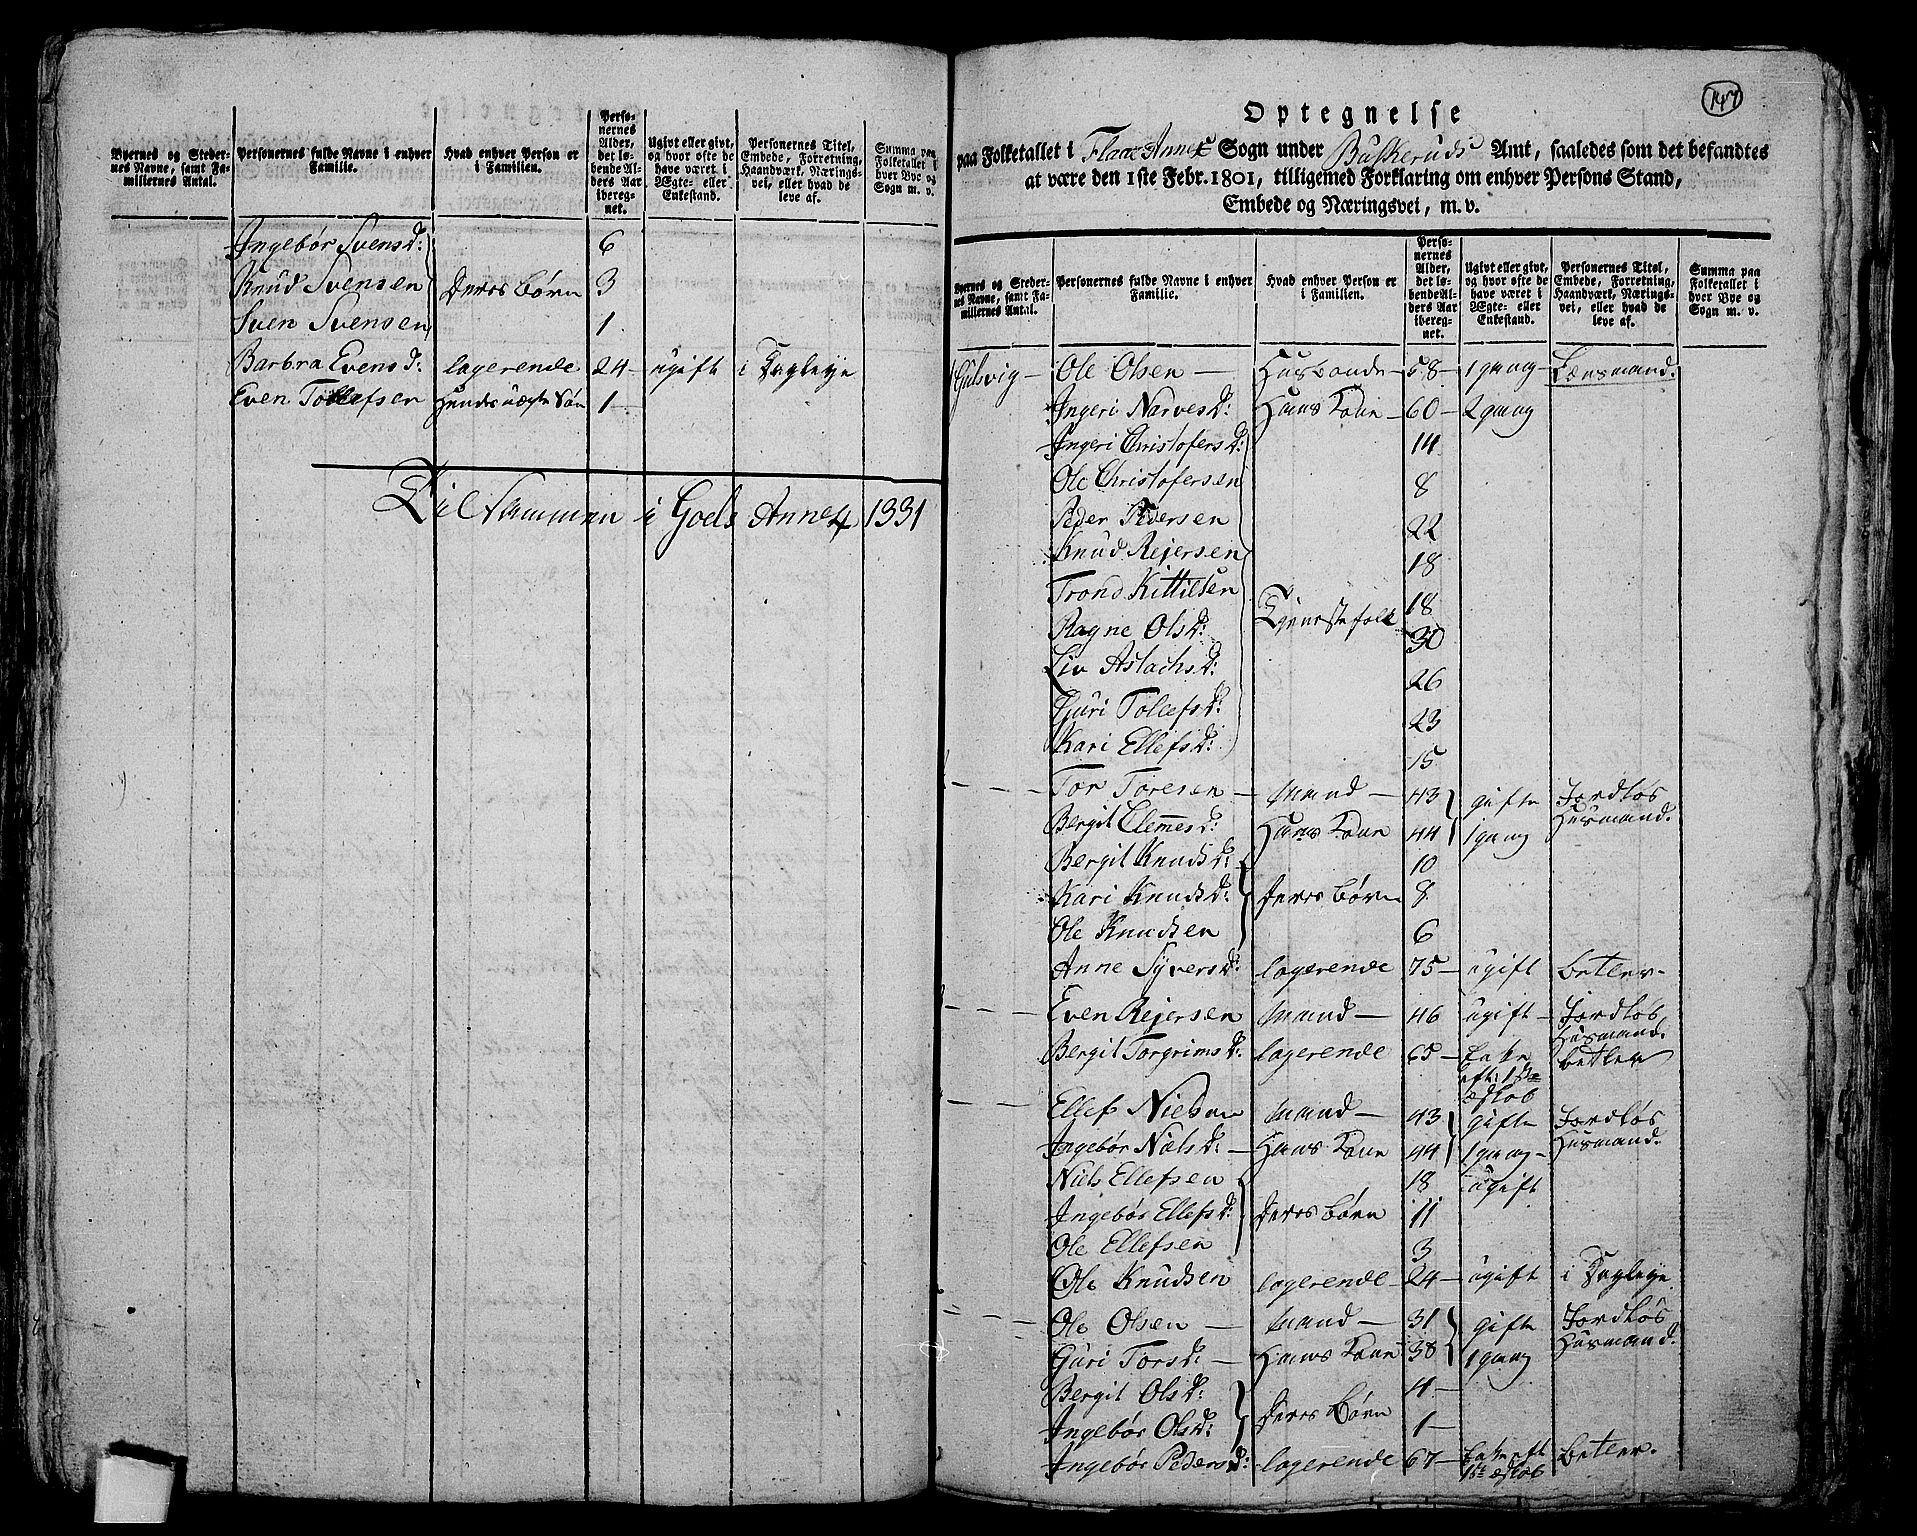 Byernes og Stedernes Navne, samt Familiernes Antal.
Personernes fulde Navne i enhver Familie.
Hvad enhver Person er i Familien.
Personernes Alder, det løbende Alders Aar iberegnet.
Ugivt eller givt, og hvor ofte de have været i Ægte- eller Enkestand.
Personernes Titel, Embede, Forretning, Haandværk, Næringsvei, eller hvad de leve af.
Summa paa Folketallet i hver Bye og Sogn m. v.
Ingebør Svensd: 6
Knud Svensen Deres Børn 3
Sven Svensen 1
Barbra Evensd: logerende 24 – ugift i Dagleye
Even Tollefsen Hendes uægte Søn 1 –
Tilsammen i Goels Annex 1331
147
Optegnelse
paa Folketallet i Flaae Annex Sogn under Buskeruds Amt, saaledes som det befandtes
at være den 1ste Febr. 1801, tilligemed Forklaring om enhver Persons Stand,
Embede og Næringsvei, m. v.
Byernes og Stedernes Navne, samt Familiernes Antal.
Personernes fulde Navne i enhver Familie.
Hvad enhver Person er i Familien.
Personernes Alder, det løbende Alders Aar iberegnet.
Ugivt eller givt, og hvor ofte de have været i Ægte- eller Enkestand.
Personernes Titel, Embede, Forretning, Haandværk, Næringsvei, eller hvad de leve af.
Summa paa Folketallet i hver Bye og Sogn m. v.
Gulsvig – Ole Olsen – Husbonde – 58 – 1 gang – Lensmand.
Ingeri Narvesd: Hans Kone – 60 – 2 gang
Ingeri Christofersd: 14
Ole Christofersen 8
Peder Pedersen 22
Knud Rejersen 18
Trond Kittilsen 18
Ragne Olsd: Tjenestefolk 30
Liv Aslachsd: 26
Guri Tolefsd: 23
Kari Ellefsd: 15
Tor Toresen – Mand – 43 gifte Jordløs
Bergit Clemesd: Hans Kone 44 1 gang Husmand.
Bergit Knudsd: 10
Kari Knudsd: Deres Børn 8
Ole Knudsen 6
Anne Syversd: logerende 75 – ugift betler –
Even Rejersen Mand – 46 ugift – Jordløs Husmand.
Bergit Torgrimsd: logerende 65 – Enke betler
Ellef Nielsen Mand – 43 gifte Jordløs
Ingebør Nielsd: – Hans Kone 44 1 gang – Husmand.
Niels Ellefsen 18 ugift
Ingebør Ellefsd: Deres Børn 11
Ole Ellefsen 3
Ole Knudsen logerende – 24 – ugift i Dagleye
Ole Olsen – Mand – 31 gifte Jordløs
Guri Torsd: – Hans Kone 38 1 gang Husmand.
Bergit Olsd: 4 –
Ingebør Olsd: Deres Børn 1 –
Ingebør Pedersd: logerende 67 – Enke eft betler.